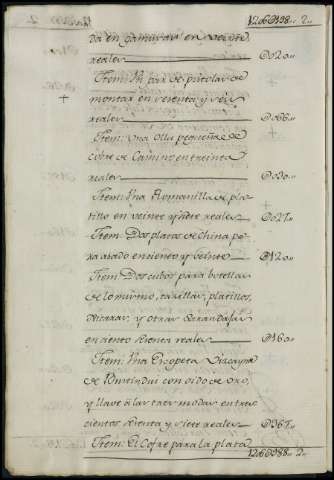 126@198.. 2..
da en gamuza en veinte
reales @020..
Item: Un par de pistolas de
montar en sesenta y seis
reales @066..
Item: Una olla pequeña de
cobre de Camino en treinta
reales @030..
Item: Una Romanilla de pla
tillo en veinte y siete reales @027..
Item: Dos platos de China pa
ra asado en ciento y veinte @120..
Item: Dos cubos para botellas
de lo mismo, tasillas, platillos,
y otras
en ciento sesenta reales @160..
Item: Una Escopeta Vizcayna
de con oido de oro,
y llave a las tres modas en tres
cientos sesenta y siete reales @367..
Item: El Cofre para la plata
126@988.. 2..